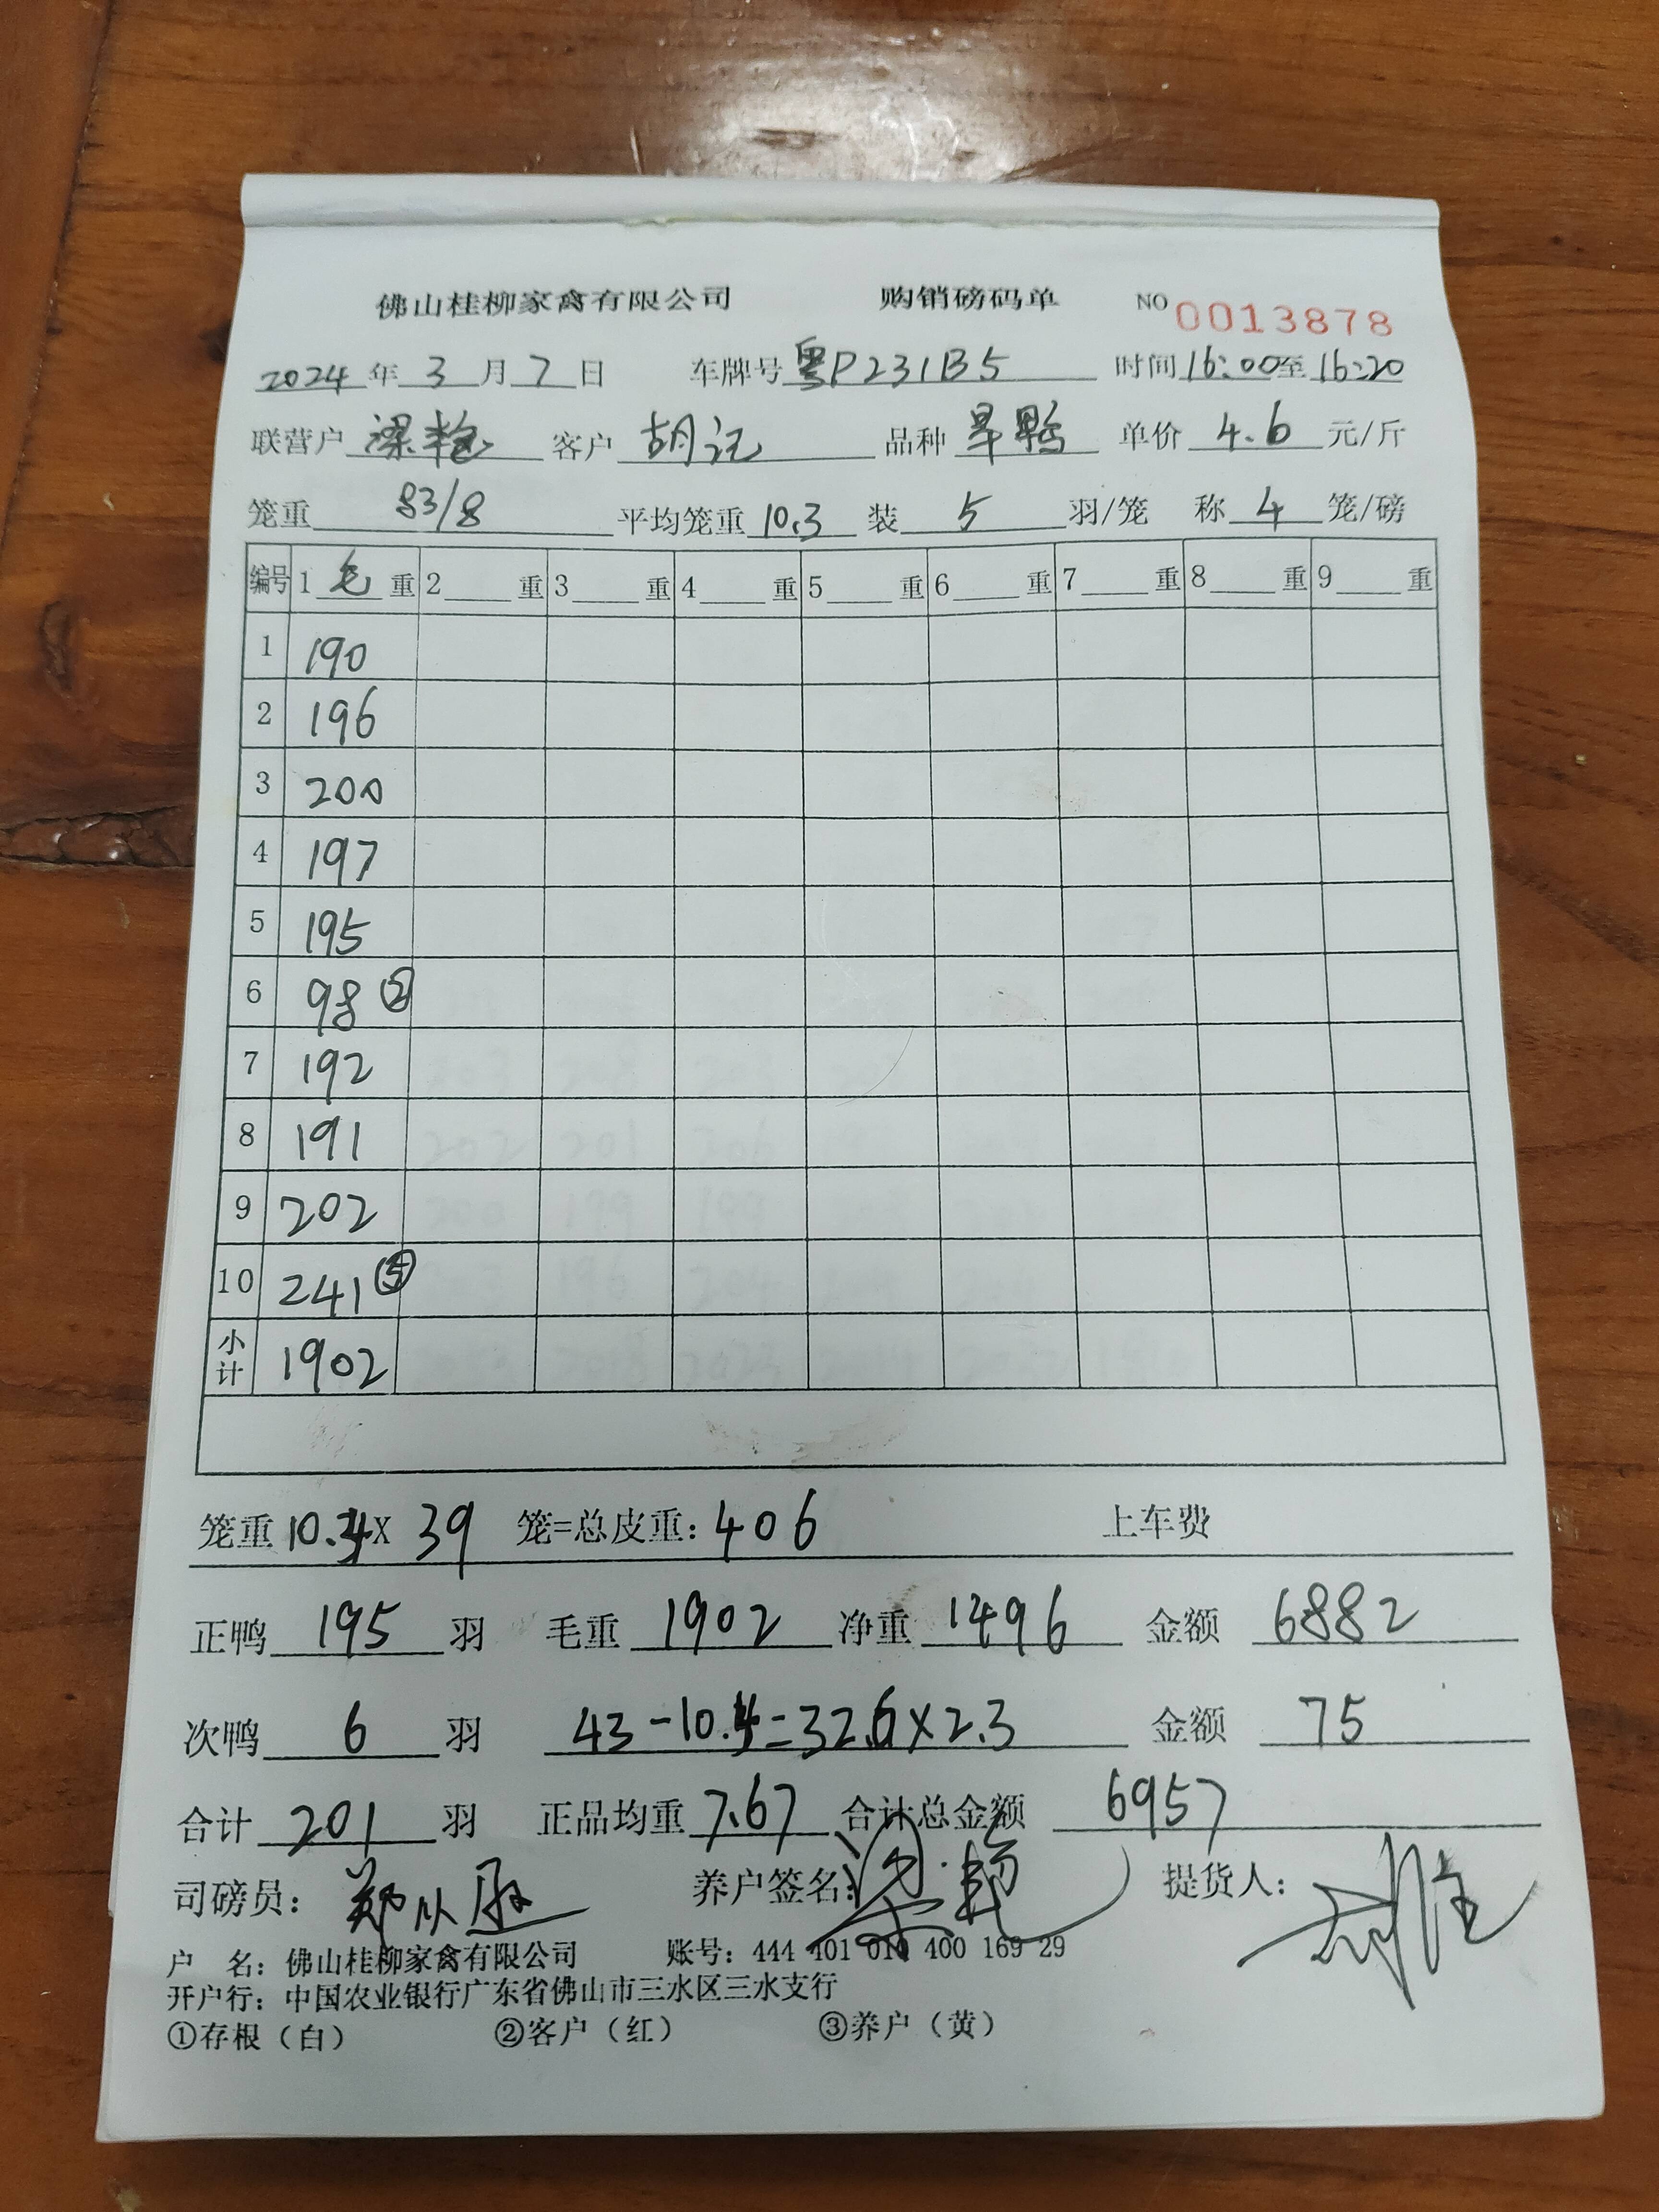 佛山桂柳家禽有限公司 购销磅码单 NO 0013878
2024 年 3 月 7 日 车牌号 粤P231B5 时间 16:00 至 16:20
联营户 梁艳 客户 胡记 品种 旱鸭 单价 4.6 元/斤
笼重 83/8 平均笼重 10.3 装 5 羽/笼 称 4 笼/磅
编号 1 毛 重 2 重 3 重 4 重 5 重 6 重 7 重 8 重 9 重
1 190
2 196
3 200
4 197
5 195
6 98 ②
7 192
8 191
9 202
10 241 ⑤
小计 1902
笼重 10.4 X 39 笼=总皮重: 406 上车费
正鸭 195 羽 毛重 1902 净重 1496 金额 6882
次鸭 6 羽 43-10.4=32.6×2.3 金额 75
合计 201 羽 正品均重 7.67 合计总金额 6957
司磅员: 郑 养户签名: 梁艳 提货人:
户 名: 佛山桂柳家禽有限公司 账号: 444 401 010 400 169 29
开户行: 中国农业银行广东省佛山市三水区三水支行
①存根（白） ②客户（红） ③养户（黄）